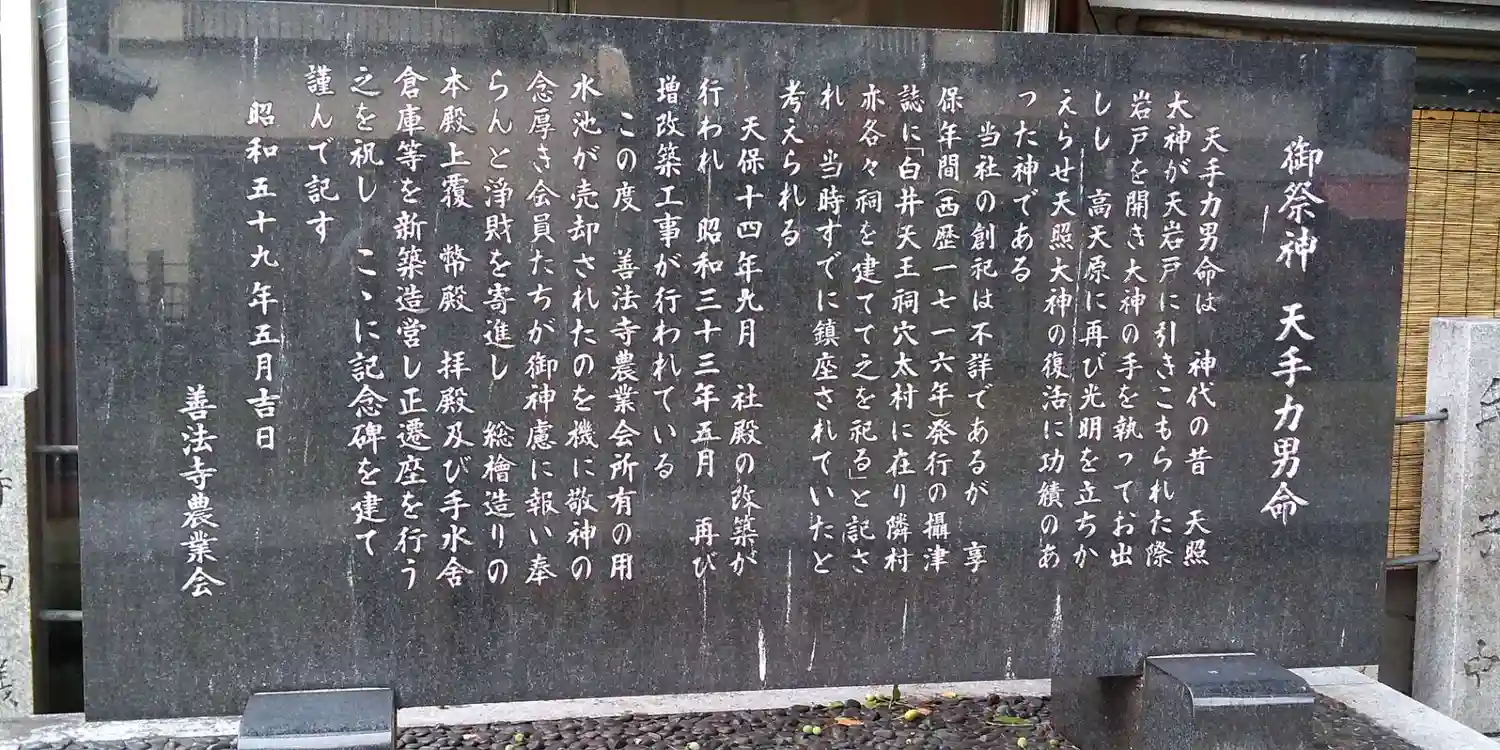 御祭神 天手力男命
天手力男命は 神代の昔 天照
大神が天岩戸に引きこもられた際
岩戸を開き大神の手を執ってお出
しし 高天原に再び光明を立ちか
えらせ天照大神の復活に功績のあ
った神である
当社の創祀は不詳であるが 享
保年間(西歴一七一六年)発行の攝津
誌に「白井天王祠穴太村に在り隣村
亦各々祠を建てて之を祀る」と記さ
れ 当時すでに鎮座されていたと
考えられる
天保十四年九月 社殿の改築が
行われ 昭和三十三年五月 再び
増改築工事が行われている
この度 善法寺農業会所有の用
水池が売却されたのを機に敬神の
念厚き会員たちが御神慮に報い奉
らんと浄財を寄進し 総檜造りの
本殿上覆 幣殿 拝殿及び手水舎
倉庫等を新築造営し正遷座を行う
之を祝し こゝに記念碑を建て
謹んで記す
昭和五十九年五月吉日
善法寺農業会